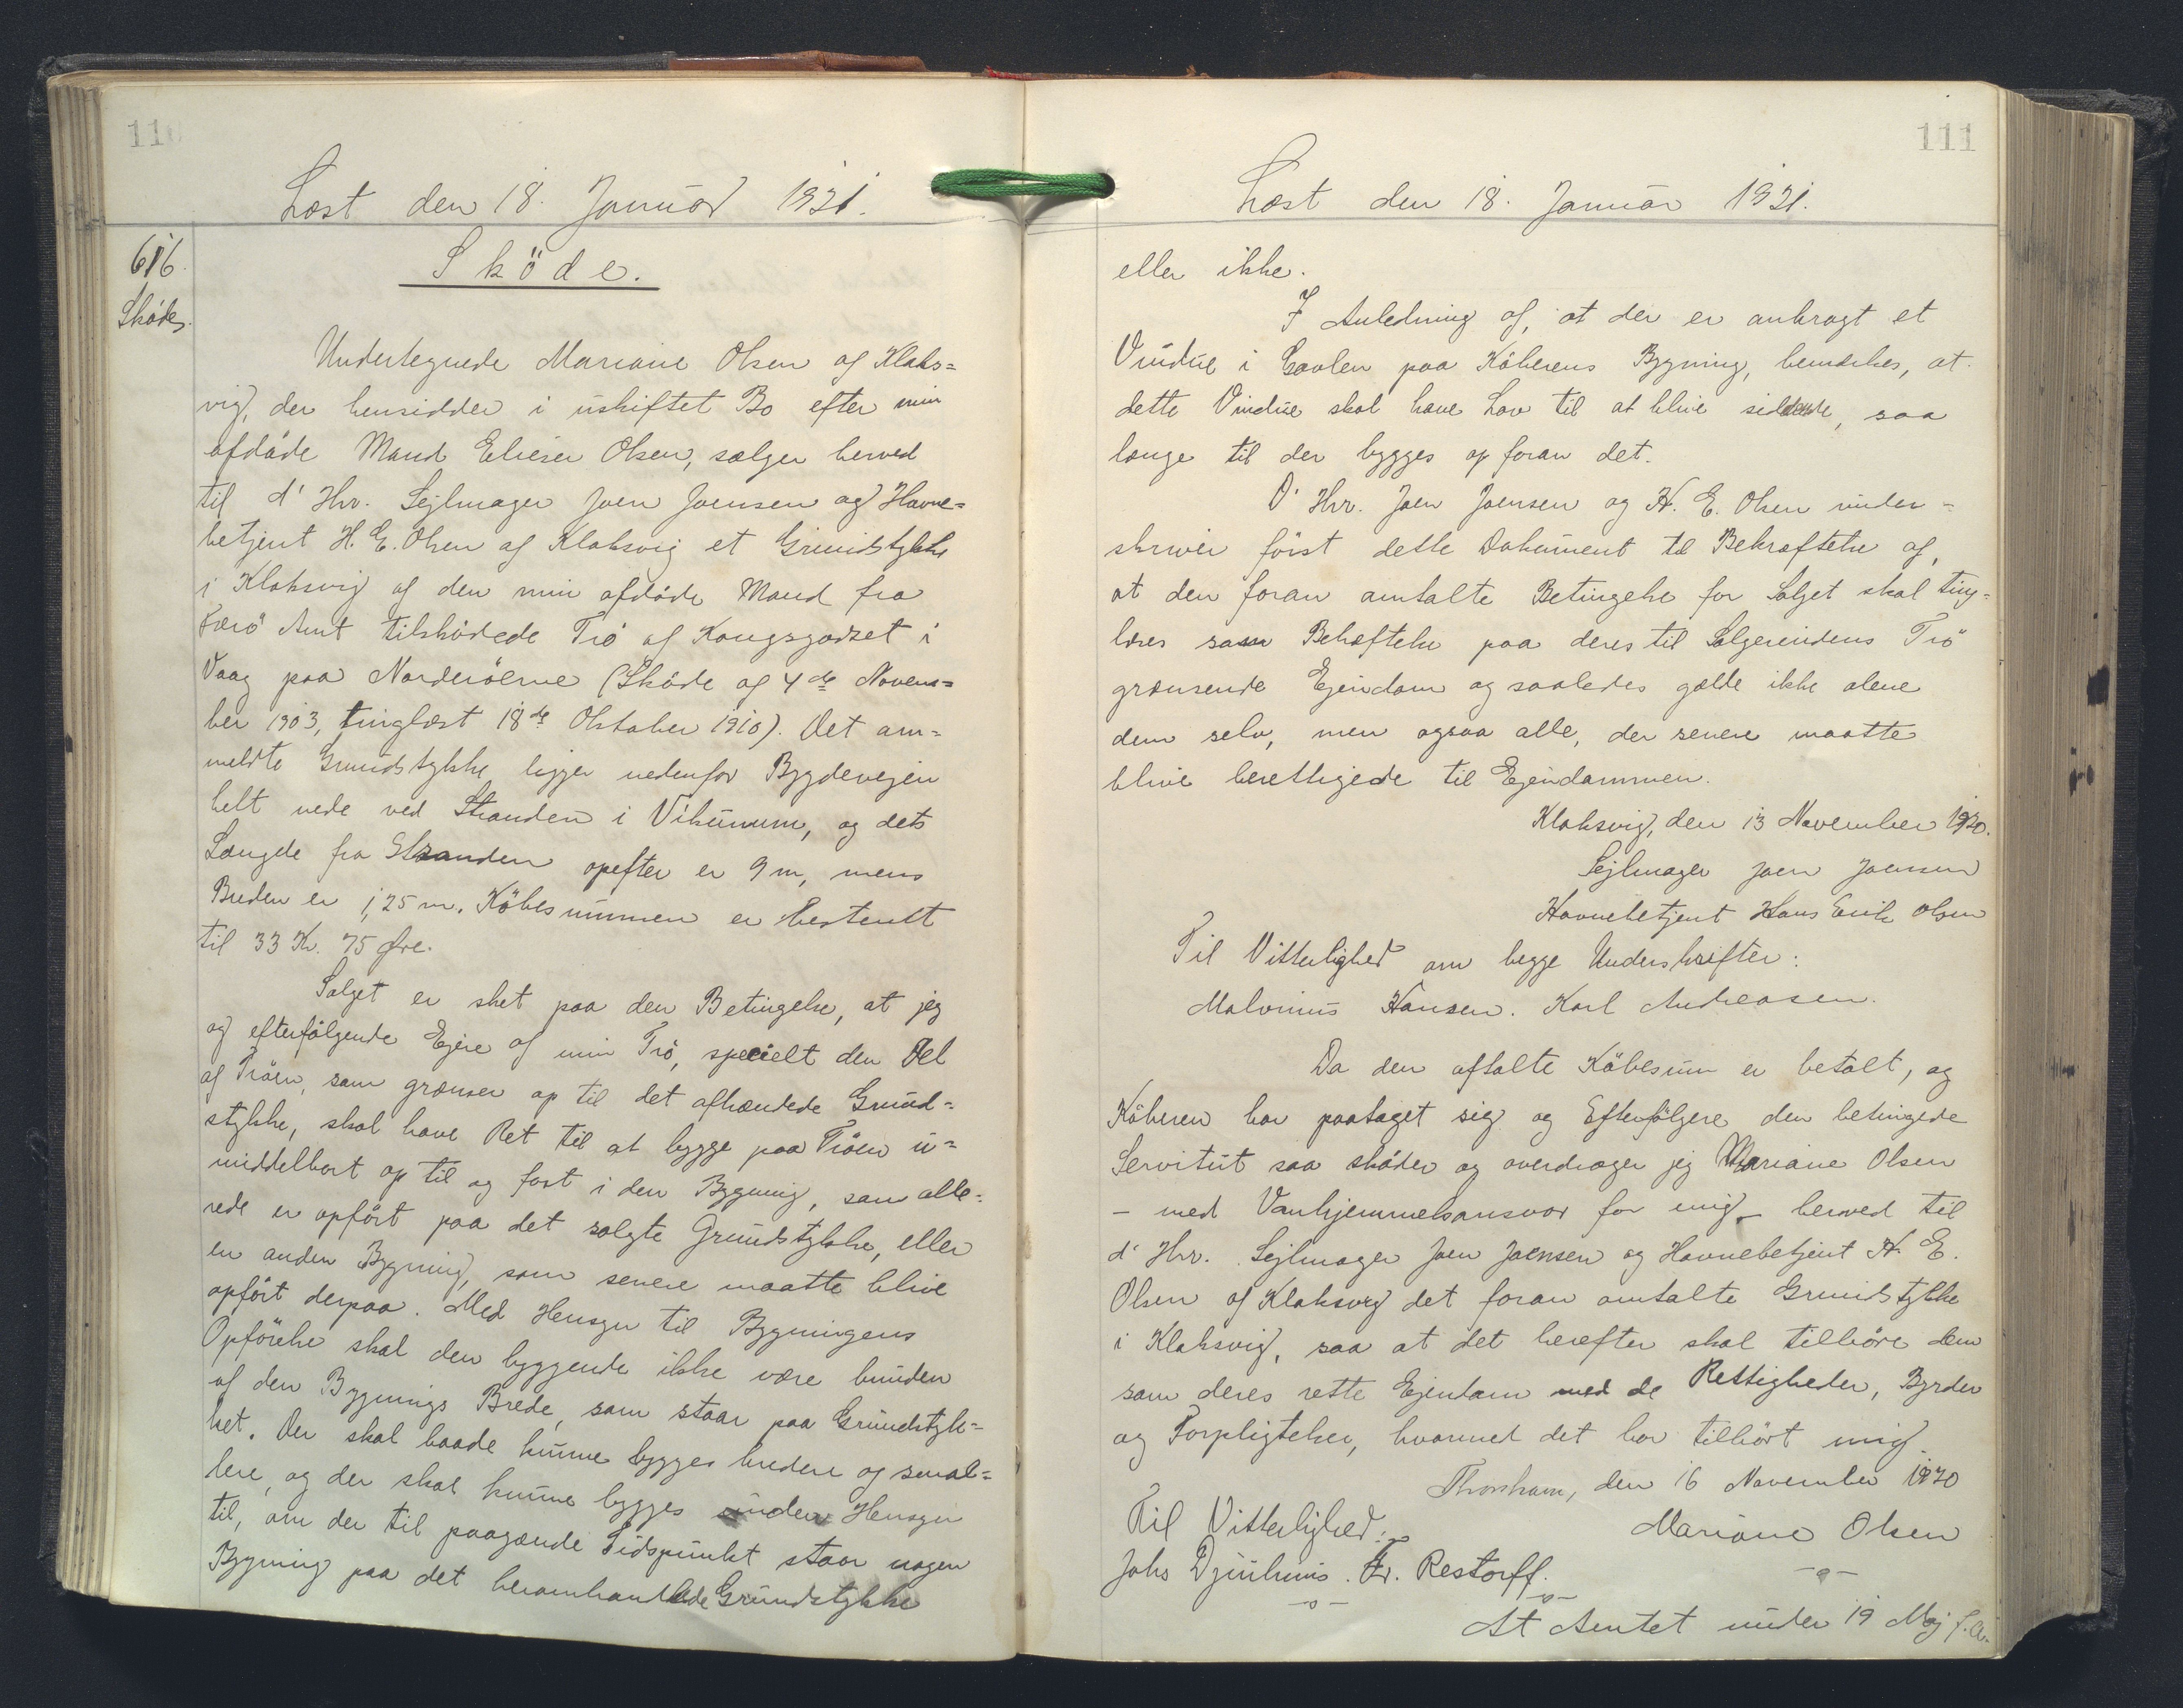 110
Læst den 18. Januar 1921.
616.
Sköde.
Sköde.
Undertegnede Mariane Olsen af Klaks=
vig, der hensidder i uskiftet Bo efter min
afdöde Mand Elieser Olsen, sælger herved
til d'Hrr. Sejlmager Joen Joensen og Havne=
betjent H. E. Olsen af Klaksvig et Grundstykke
i Klaksvig af den min afdöde Mand fra
Færö Amt tilsködede Trö af Kongsgodset i
Vaag paa Norderöerne (Sköde af 4de Novem=
ber 1903, tinglæst 18de Oktober 1910). Det om=
meldte Grundstykke ligger nedenfor Bygdevejen
helt nede ved Stranden i Vikunum, og dets
Længde fra Stranden opefter er 9 m, mens
Breden er 1,25 m. Köbesummen er bestemt
til 33 Kr. 75 Øre.
Salget er sket paa den Betingelse, at jeg
og efterfölgende Ejere af min Trö, specielt den Del
af Tröen, som grænser op til det afhændede Grund=
stykke, skal have Ret til at bygge paa Tröen u=
middelbart op til og fast i den Bygning, som alle=
rede er opfört paa det solgte Grundstykke, eller
en anden Bygning, som senere maatte blive
opfört derpaa. Med Hensyn til Bygningens
Opförelse skal den byggende ikke være bunden
af den Bygnings Brede, som staar paa Grundstyk=
ket. Der skal baade kunne bygges bredere og smal=
lere, og der skal kunne bygges uden Hensyn
til, om der til paagældende Tidspunkt staar nogen
Bygning paa det heromhandlede Grundstykke
111
Læst den 18. Januar 1921.
eller ikke.
I Anledning af, at der er anbragt et
Vindue i Gavlen paa Köberens Bygning, bemærkes, at
dette Vindue skal have Lov til at blive siddende, saa
længe til der bygges op foran det.
D'Hrr. Joen Joensen og H. E. Olsen under=
skriver först dette Dokument til Bekræftelse af,
at den foran omtalte Betingelse for Salget skal ting=
læses som Behæftelse paa deres til Sælgerindens Trö
grænsende Ejendom og saaledes gælde ikke alene
dem selv, men ogsaa alle, der senere maatte
blive berettigede til Ejendommen.
Klaksvig, den 13 November 1920.
Sejlmager Joen Joensen
Havnebetjent Hans Erik Olsen
Til Vitterlighed om begge Underskrifter:
Malvinus Hansen. Karl Andreasen.
Da den aftalte Köbesum er betalt, og
Köberen har paataget sig og Efterfölgere den betingede
Servitut saa sköder og overdrager jeg Mariane Olsen
– med Vanhjemmelsansvar for mig – herved til
d'Hrr. Sejlmager Joen Joensen og Havnebetjent H. E.
Olsen af Klaksvig det foran omtalte Grundstykke
i Klaksvig, saa at det herefter skal tilhöre dem
som deres rette Ejendom med de Rettigheder, Byrder
og Forpligtelser, hvormed det har tilhört mig.
Thorshavn, den 16 November 1920
Til Vitterlighed:
Mariane Olsen
Johs Djurhuus. Fr. Restorff.
-o-
-o-
-o-
At Amtet under 19 Maj f. A.